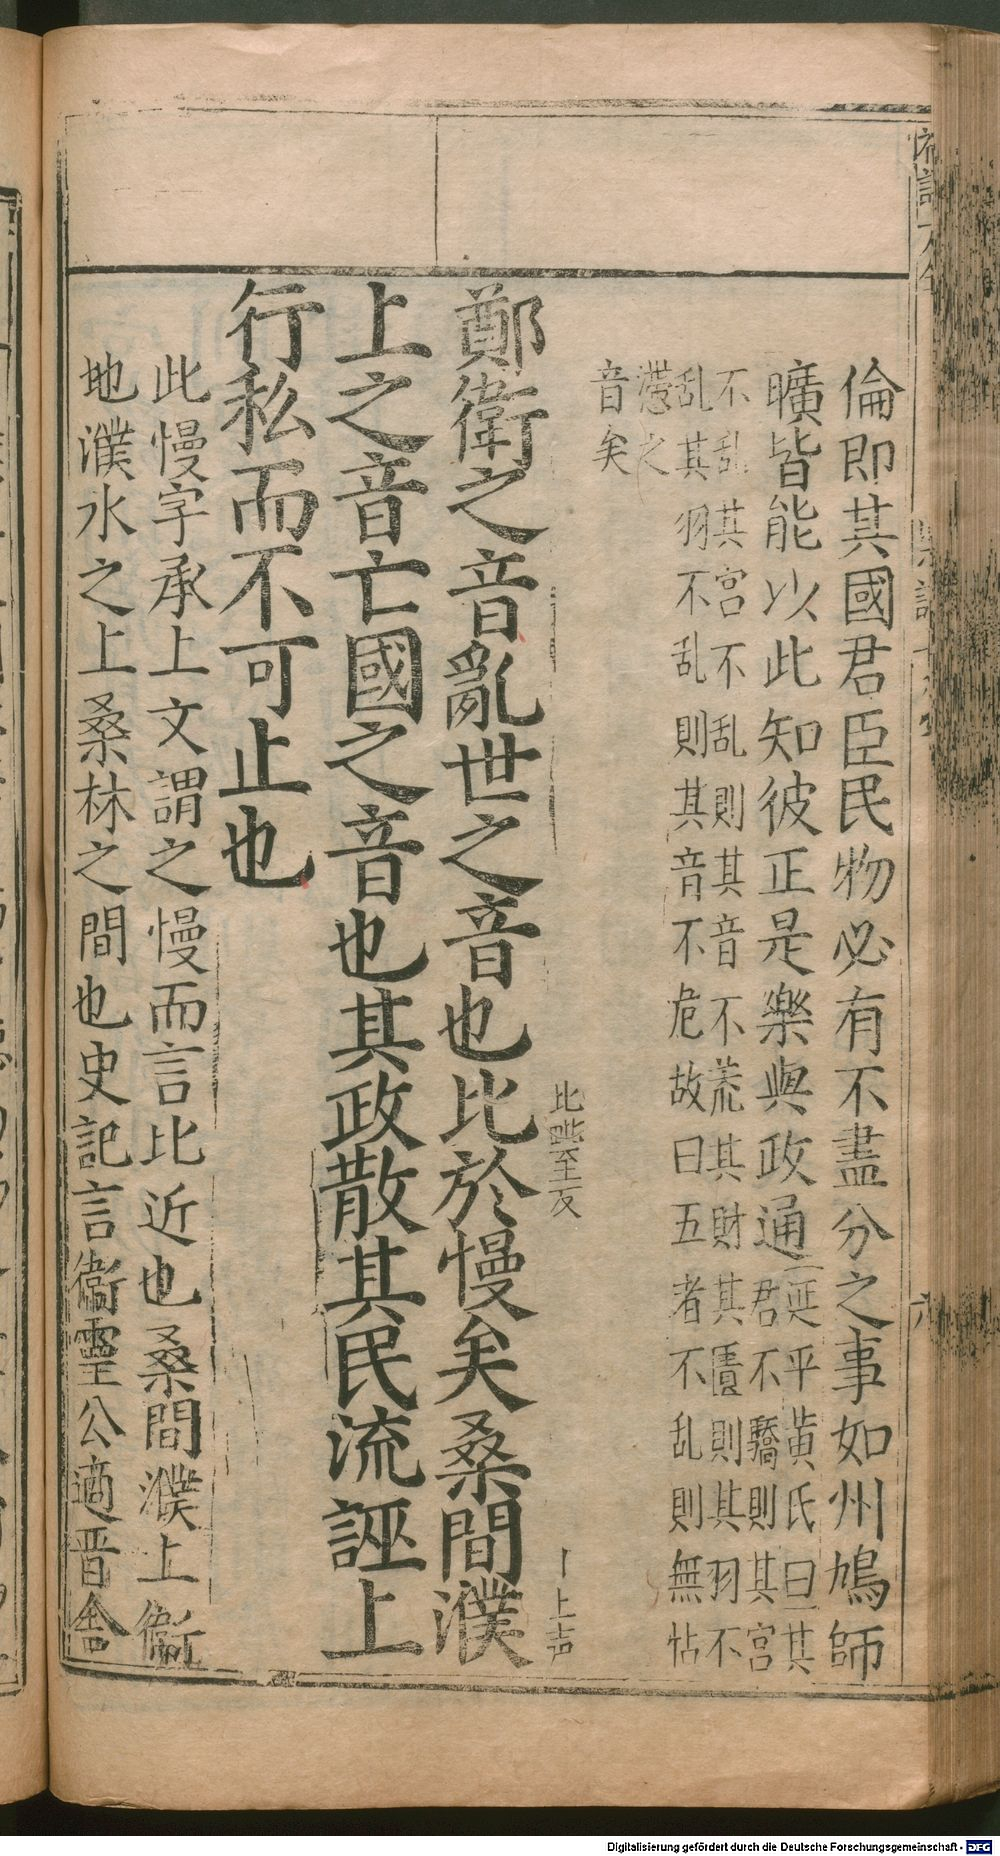 倫即其國君臣民物必有不盡分之事如州鳩師
曠皆能以此知彼正是樂與政通
延平黃氏曰其
君不驕則其宮
不乱其宮不乱則其音不荒其財其匱則其羽不
乱其羽不乱則其音不危故曰五者不乱則無怗
懘之
音矣
比毗至反
丨上声
鄭衛之音亂世之音也比於慢矣桑間濮
上之音亡國之音也其政散其民流誣上
行私而不可止也
此慢字承上文謂之慢而言比近也桑間濮上衞
地濮水之上桑林之間也史記言衞靈公適晋舎
Digitalisierung gefördert durch die Deutsche Forschungsgemeinschaft - DFG